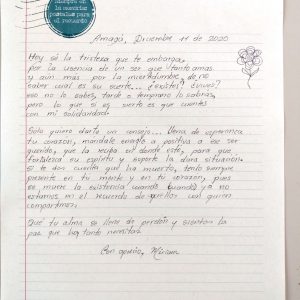 Siempre en
la memoria
postales para
el recuerdo
Amagá, Diciembre 11 de 2020
Hoy sé la tristeza que te embarga,
por la usencia de un ser que tanto amas
y aún mas por la incertidumbre, de no
saber cual es su suerte... ¿existe? ¿vive?
eso no lo sabes, tarde o temprano lo sabras,
pero lo que si es cierto es que cuentas
con mi solidaridad.
Solo quiero darte un consejo... llena de esperanza
tu corazon, mandale energía positiva a ese ser
querido, que la reciba en donde esté, para que
fortalezca su espíritu y soporte la dura situación.
Si te das cuenta que ha muerto, tenlo siempre
presente en tu mente y en tu corazon, pues
se muere la existencia cuando ya no
estamos en el recuerdo de quellos con quien
compartimos.
Que tu alma se llene de perdón y sientas la
paz que hoy tanto necesitas.
Con aprecio, Miriam